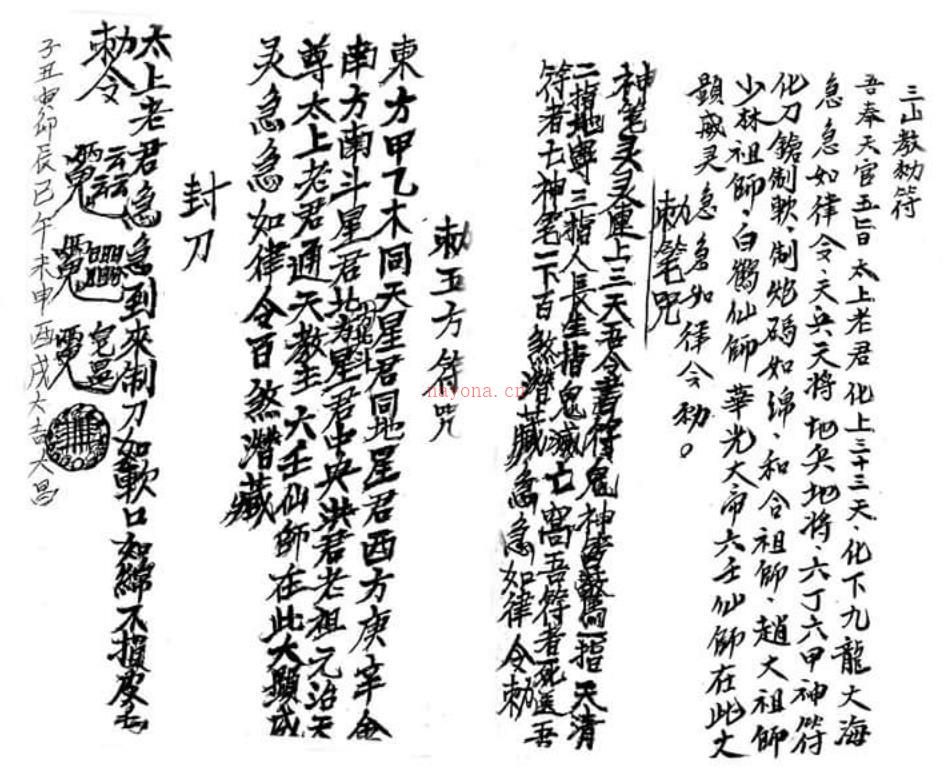 三山教勅符
吾奉天官五旨太上老君化上三十三天、化下九龍大海
急急如律令、天兵天將、地兵地將、六丁六甲神符
化刀鎗制軟、制炮碼如綿、和合祖師、趙大祖師
少林祖師、白鶴仙師華光大帝六壬仙師在此大
顯威灵急急如律令勅。
勅笔咒
神笔灵灵運上三天吾令書符鬼神皆驚一指天清
二指地寧三指人長生指鬼滅亡寫吾符者死送吾
符者亡神笔一下百煞潜藏急急如律令勅
勅五方符咒
東方甲乙木同天星君同地星君西方庚辛金
南方南斗星君北方星君中央洪君老祖元治天
尊太上老君通天教主六壬仙師在此大顯威
灵急急如律令百煞潜藏
封刀
太上老君急急到來制刀如軟口如綿不損皮毛
勅令
子丑寅卯辰巳午未申酉戌大吉大昌
nayona.cn